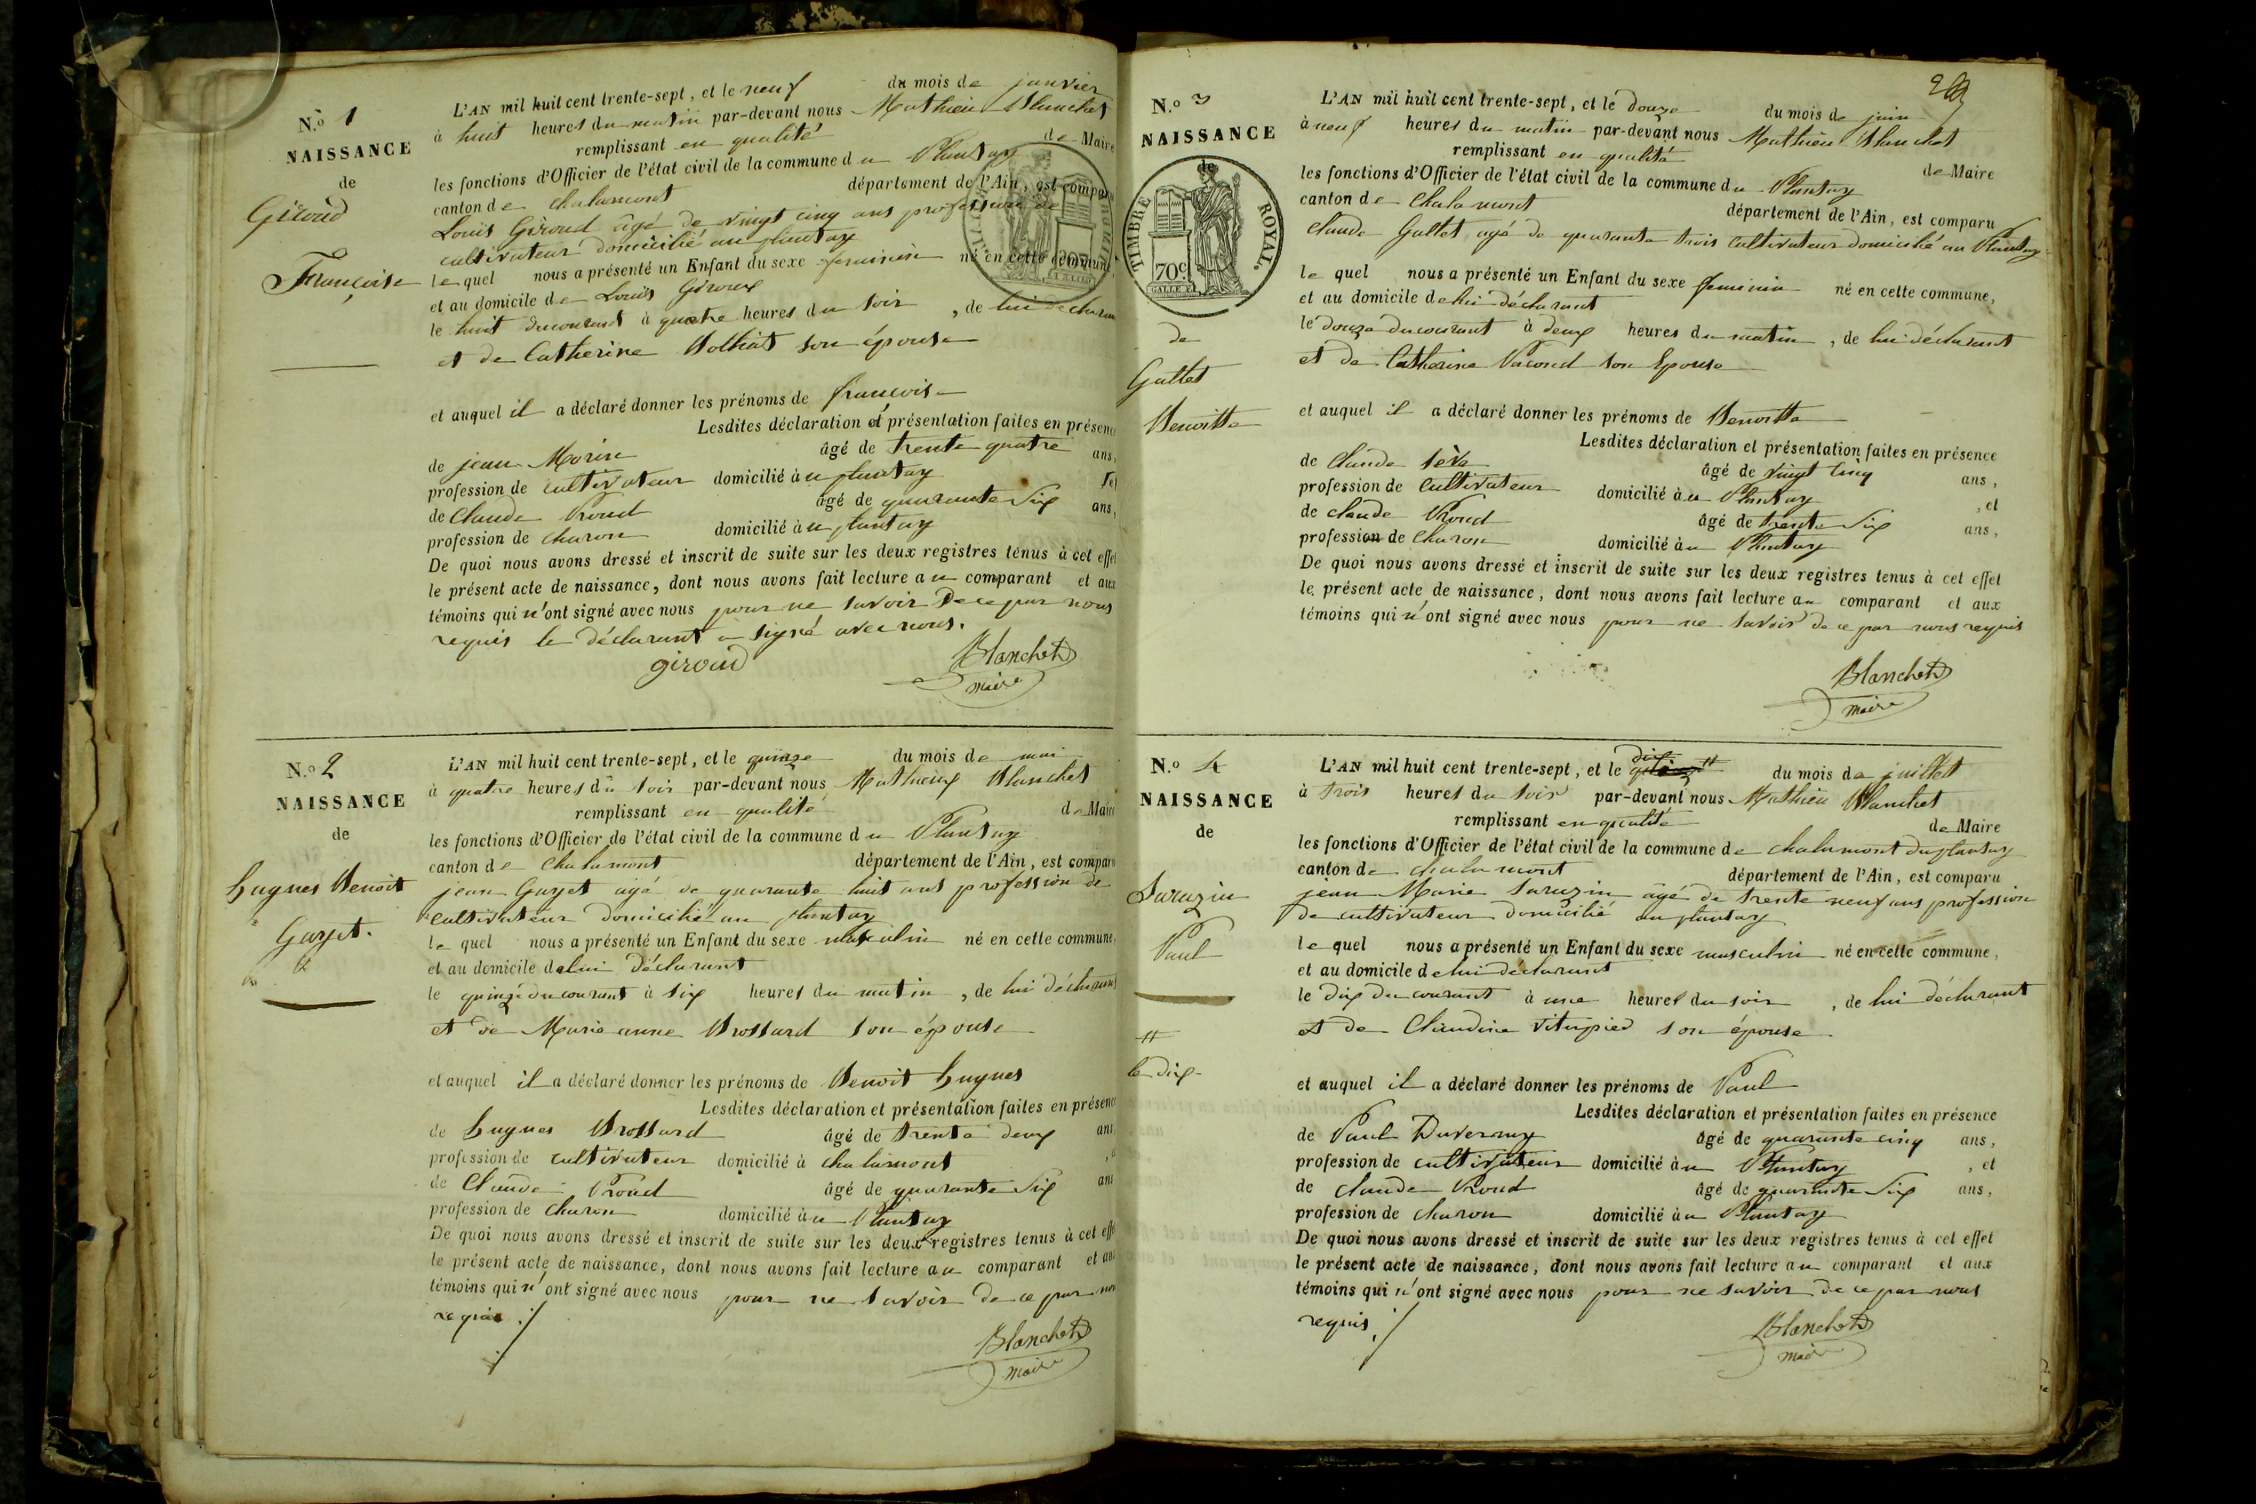 N.º 1
NAISSANCE
de
Giroud
Françoise
L'AN mil huit cent trente-sept, et le neuf du mois de janvier
à huit heures du matin par-devant nous Mathieu Blanchet
remplissant en qualité de Maire
les fonctions d'Officier de l'état civil de la commune du Plantay
canton de chalamont département de l'Ain, est comparu
Louis Giroud âgé de vingt cinq ans profession de
cultivateur domicilié au plantay
le quel nous a présenté un Enfant du sexe feminin né en cette commune,
et au domicile de Louis Giroud
le huit ducourant à quatre heures du soir, de lui déclarant
et de Catherine Bolliat son épouse
et auquel il a déclaré donner les prénoms de françoise
Lesdites déclaration et présentation faites en présence
de jean Morin âgé de trente quatre ans,
profession de cultivateur domicilié au plantay et
de Claude Proud âgé de quarante six ans,
profession de charon domicilié au plantay
De quoi nous avons dressé et inscrit de suite sur les deux registres tenus à cet effet
le présent acte de naissance, dont nous avons fait lecture au comparant et aux
témoins qui n'ont signé avec nous pour ne savoir de ce par nous
requis le déclarant a signé avec nous.
giroud Blanchet
maire
N.º 2
NAISSANCE
de
hugues Benoit
Gayet.
L'AN mil huit cent trente-sept, et le quinze du mois de mai
à quatre heures du soir par-devant nous Mathieux Blanchet
remplissant en qualité de Maire
les fonctions d'Officier de l'état civil de la commune du Plantay
canton de chalamont département de l'Ain, est comparu
jean Gayet agé de quarante huit ans profession de
cultivateur domicilié au plantay
le quel nous a présenté un Enfant du sexe masculin né en cette commune,
et au domicile delui déclarant
le quinze ducourant à six heures du matin, de lui déclarant
et de Marie anne Brossard son épouse
et auquel il a déclaré donner les prénoms de Benoit hugues
Lesdites déclaration et présentation faites en présence
de hugues Brossard âgé de trente deux ans
profession de cultivateur domicilié à chalamont
de Claude Proud âgé de quarante six ans
profession de charon domicilié au Plantay
De quoi nous avons dressé et inscrit de suite sur les deux registres tenus à cet effet
le présent acte de naissance, dont nous avons fait lecture au comparant et aux
témoins qui n'ont signé avec nous pour ne savoir de ce par nous
requis
Blanchet
maire
N.º 3
NAISSANCE
de
TIMBRE ROYAL.
70 c.
de
Gallet
Benoitte
L'AN mil huit cent trente-sept, et le douze du mois de juin
à neuf heures du matin par-devant nous Mathieu Blanchet
remplissant en qualité de Maire
les fonctions d'Officier de l'état civil de la commune du Plantay
canton de Chalamont département de l'Ain, est comparu
Claude Gallet agé de quarante trois cultivateur domicilié au Plantay
le quel nous a présenté un Enfant du sexe feminin né en cette commune,
et au domicile delui déclarant
le douze ducourant à deux heures du matin, de lui déclarant
et de Catherine Vacond son Epouse
et auquel il a déclaré donner les prénoms de Benoitte
Lesdites déclaration et présentation faites en présence
de Claude Sève âgé de vingt cinq ans,
profession de Cultivateur domicilié au Plantay, et
de claude Proud âgé de trente six ans,
profession de charon domicilié au Plantay
De quoi nous avons dressé et inscrit de suite sur les deux registres tenus à cet effet
le présent acte de naissance, dont nous avons fait lecture au comparant et aux
témoins qui n'ont signé avec nous pour ne savoir de ce par nous requis
Blanchet
maire
N.º 4
NAISSANCE
de
Saruzin
Paul
#
le dix
L'AN mil huit cent trente-sept, et le dix # du mois de juillet
à trois heures du soir par-devant nous Mathieu Blanchet
remplissant en qualité de Maire
les fonctions d'Officier de l'état civil de la commune de chalamont duplantay
canton de chalamont département de l'Ain, est comparu
jean Marie Saruzin âgé de trente neuf ans profession
de cultivateur domicilié au plantay
le quel nous a présenté un Enfant du sexe masculin né en cette commune,
et au domicile delui déclarant
le dix du courant à une heures du soir, de lui déclarant
et de Claudine Vitupied son épouse
et auquel il a déclaré donner les prénoms de Paul
Lesdites déclaration et présentation faites en présence
de Paul Duveraux âgé de quarante cinq ans,
profession de cultivateur domicilié au Plantay, et
de claude Proud âgé de quarante six ans,
profession de charon domicilié au Plantay
De quoi nous avons dressé et inscrit de suite sur les deux registres tenus à cet effet
le présent acte de naissance, dont nous avons fait lecture au comparant et aux
témoins qui n'ont signé avec nous pour ne savoir de ce par nous
requis
Blanchet
maire